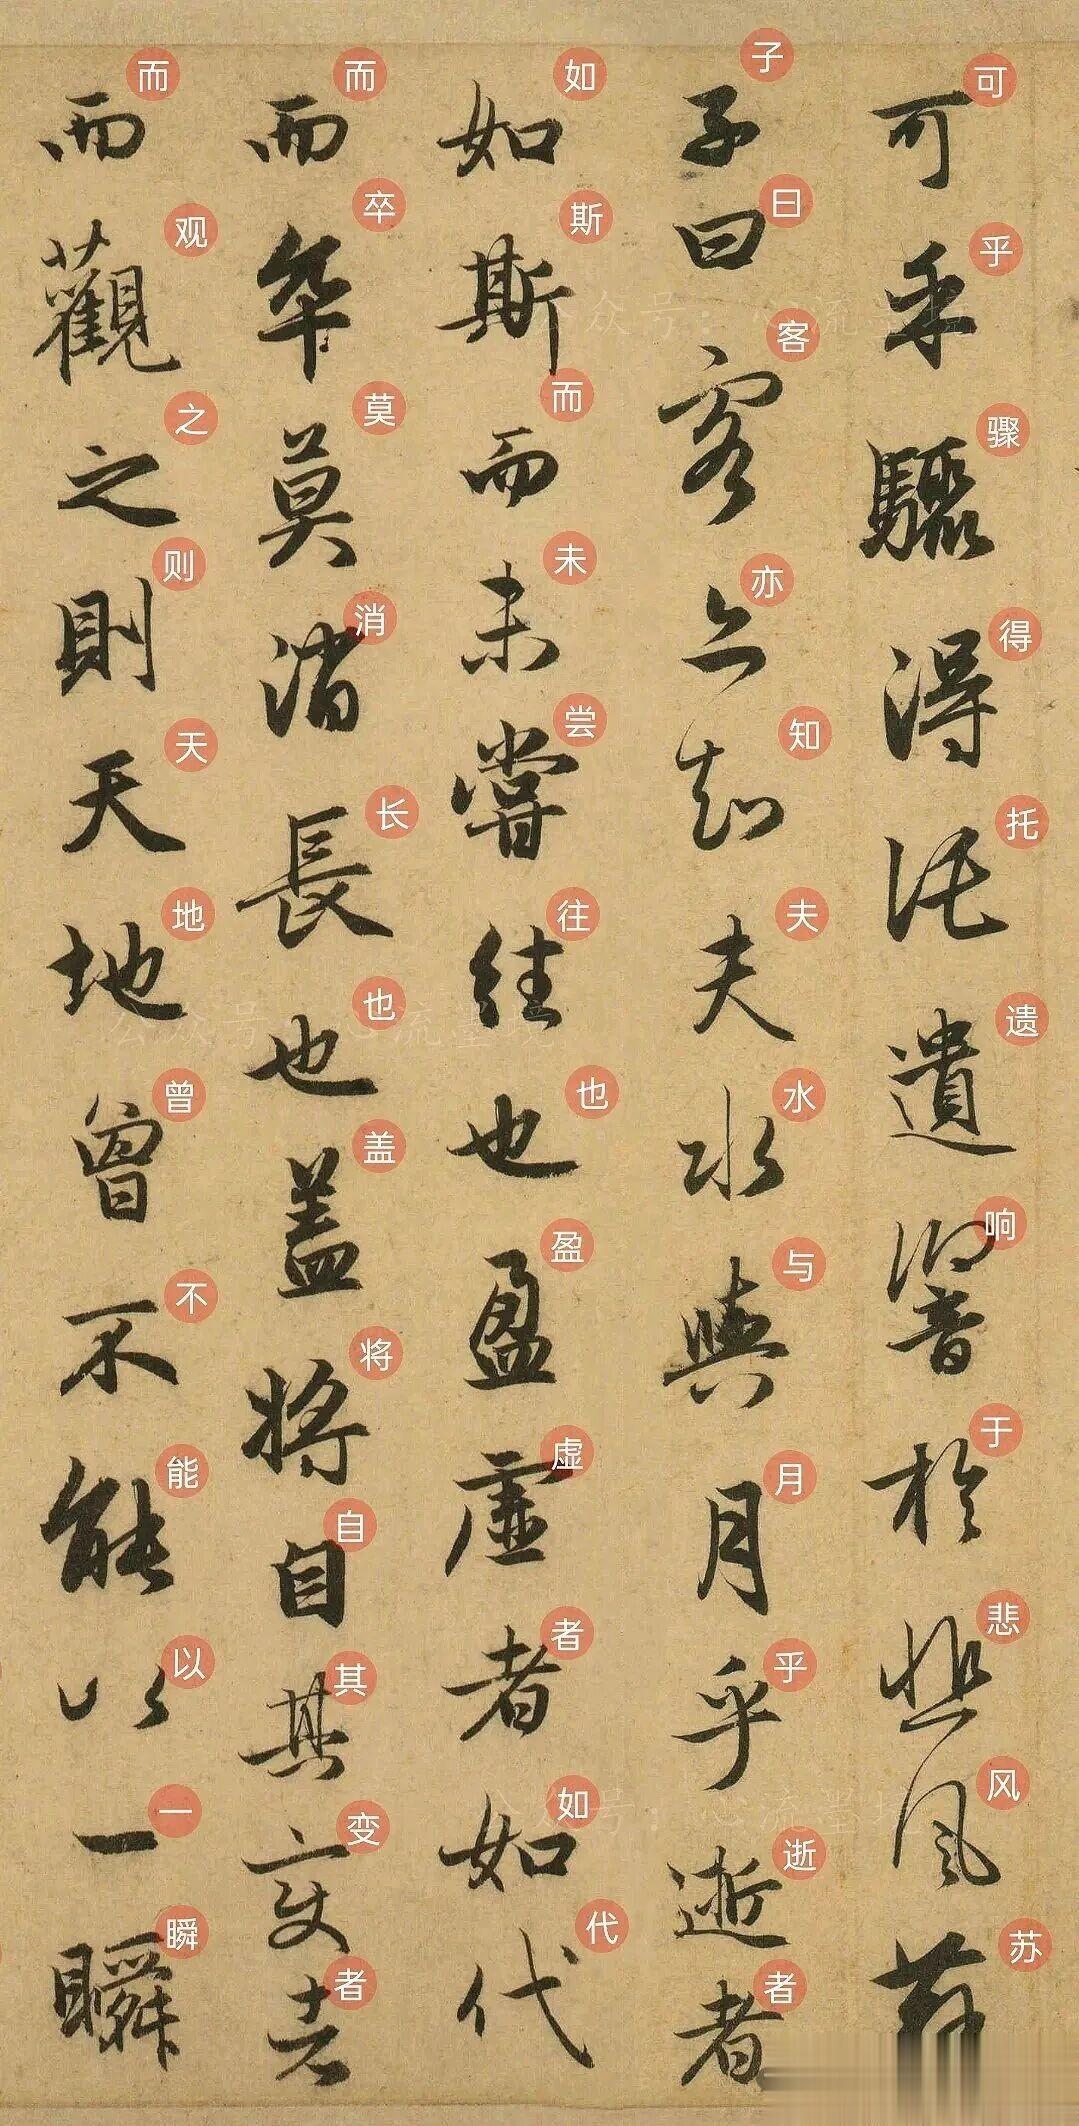 可乎骤得托遗响于悲风苏
可乎驟得託遺響於悲風蘇
子曰客亦知夫水与月乎逝者
子曰客亦知夫水與月乎逝者
如斯而未尝往也盈虚者如代
如斯而未嘗往也盈虛者如代
而卒莫消长也盖将自其变者
而卒莫消長也盖將自其變者
而观之则天地曾不能以一瞬
而觀之則天地曾不能以一瞬